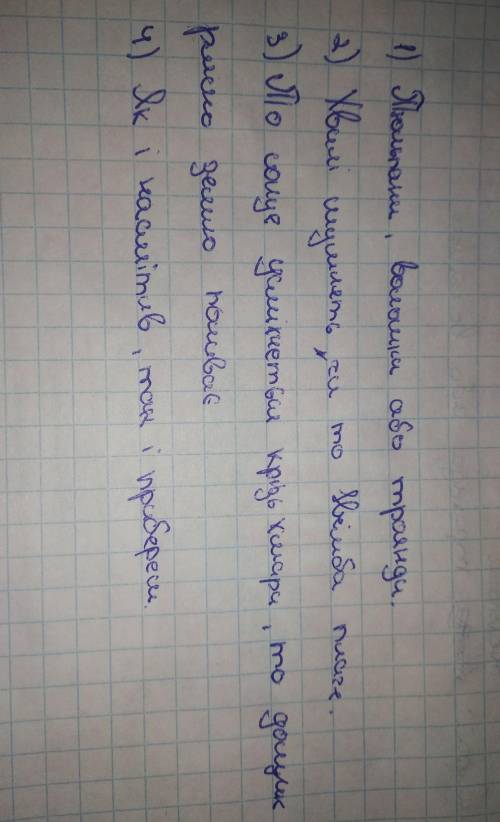 1) Тюльпани, волошки або троянди.
2) Хвилі шумлять, чи то трембіта плаче.
3) То сонце усміхнеться крізь хмари, то дощик
рясно землю поливає
4) Як і насмітив, так і прибереш.